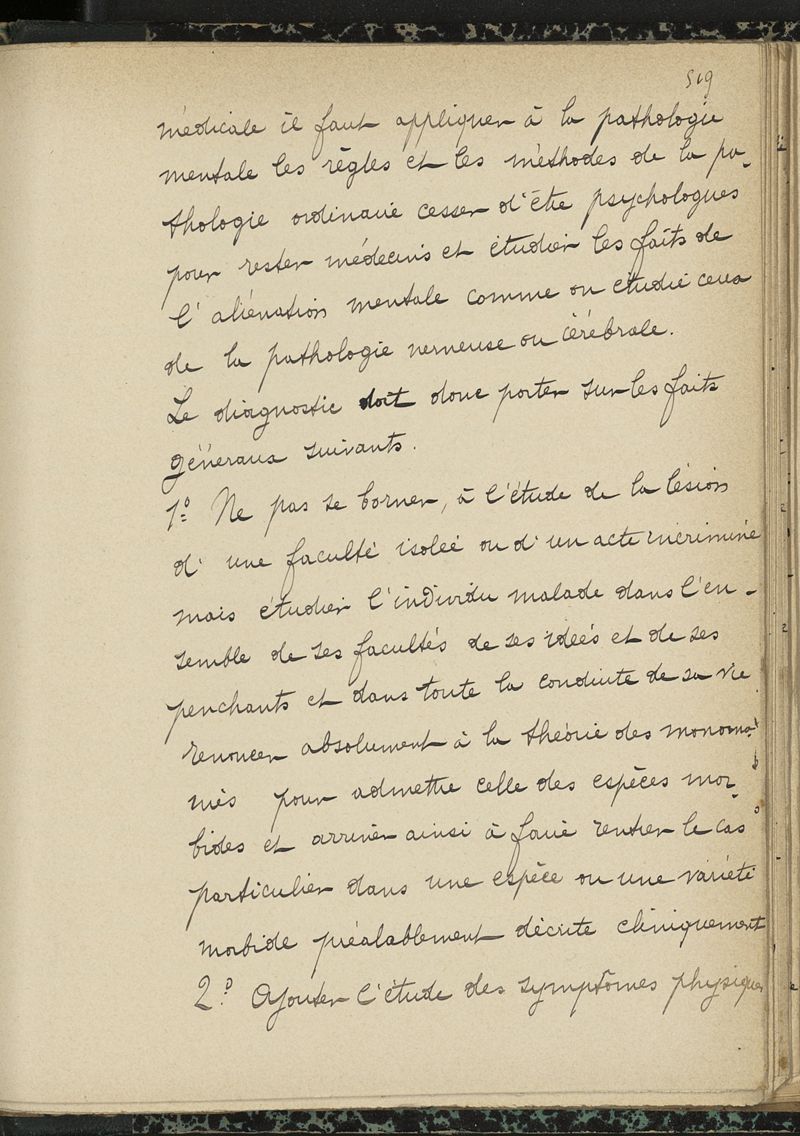 519
médicale il faut appliquer à la pathologie
mentale les règles et les méthodes de la pa-
thologie ordinaire cesser d'être psychologues
pour rester médecins et étudier les faits de
l'aliénation mentale comme on étudie ceux
de la pathologie nerveuse ou cérébrale.
Le diagnostic doit donc porter sur les faits
généraux suivants.
1º Ne pas se borner, à l'étude de la lésion
d'une faculté isolée ou d'un acte incriminé
mais étudier l'individu malade dans l'en-
semble de ses facultés de ses idées et de ses
penchants et dans toute la conduite de sa vie
renoncer absolument à la théorie des monoma-
nies pour admettre celle des espèces mor-
bides et arriver ainsi à faire rentrer le cas
particulier dans une espèce ou une variété
morbide préalablement décrite cliniquement
2º Ajouter l'étude des symptômes physiques